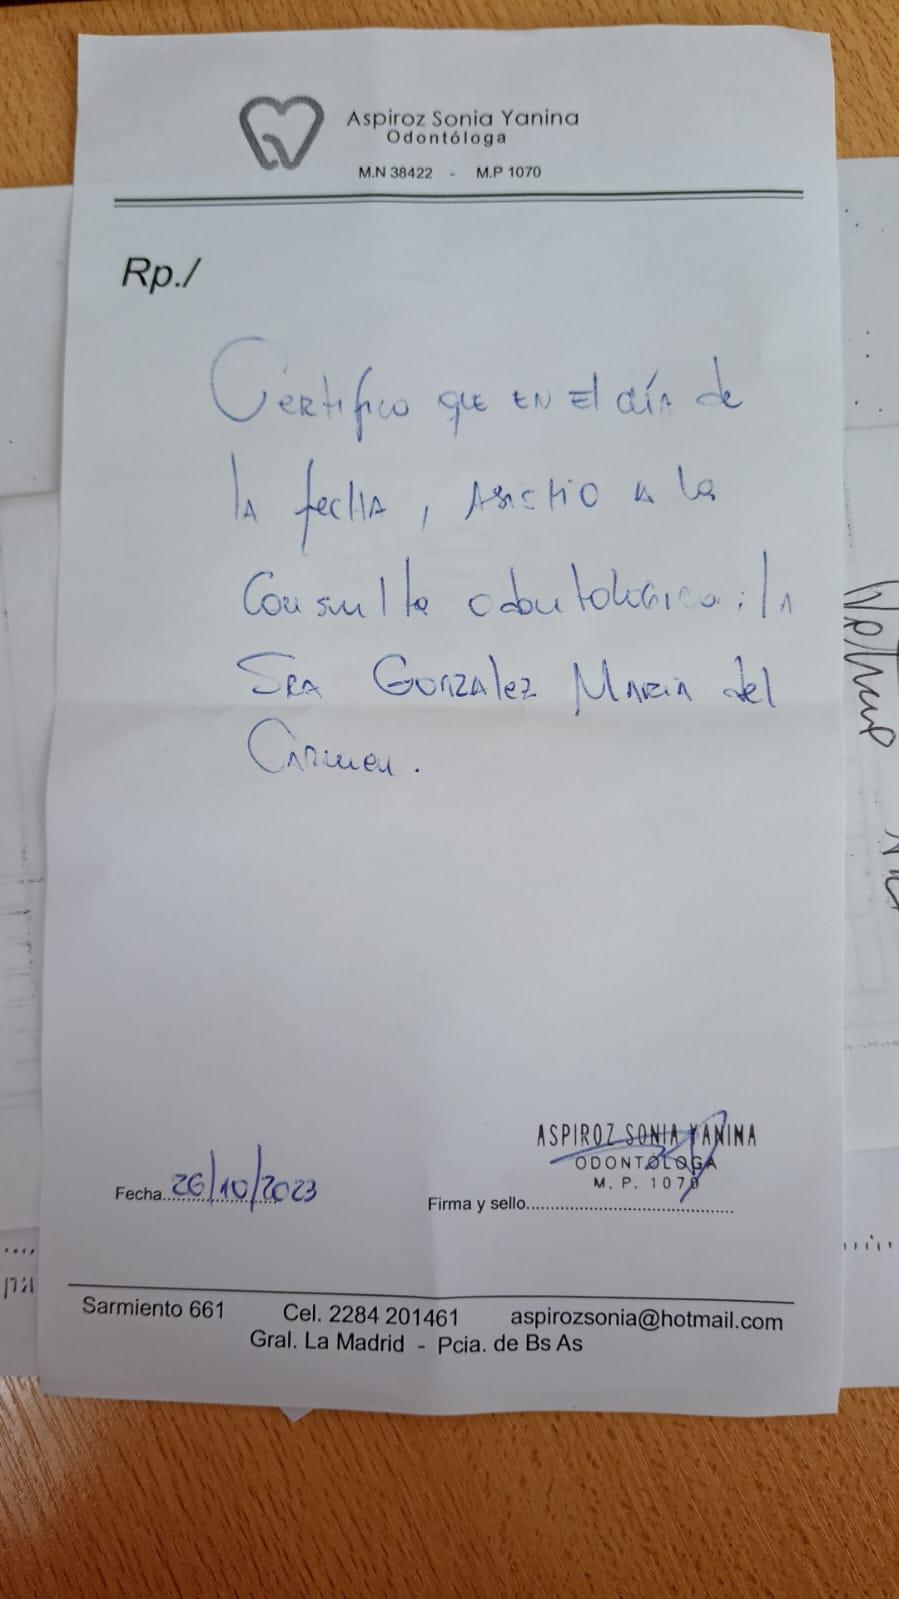 Aspiroz Sonia Yanina
Odontóloga
M.N 38422 - M.P 1070
Rp./
Certifico que en el día de
la fecha, asistio a la
consulta odontologica: la
Sra Gonzalez Maria del
Carmen.
ASPIROZ SONIA YANINA
ODONTÓLOGA
M. P. 1070
Fecha 26/10/2023
Firma y sello
Sarmiento 661 Cel. 2284 201461 aspirozsonia@hotmail.com
Gral. La Madrid - Pcia. de Bs As